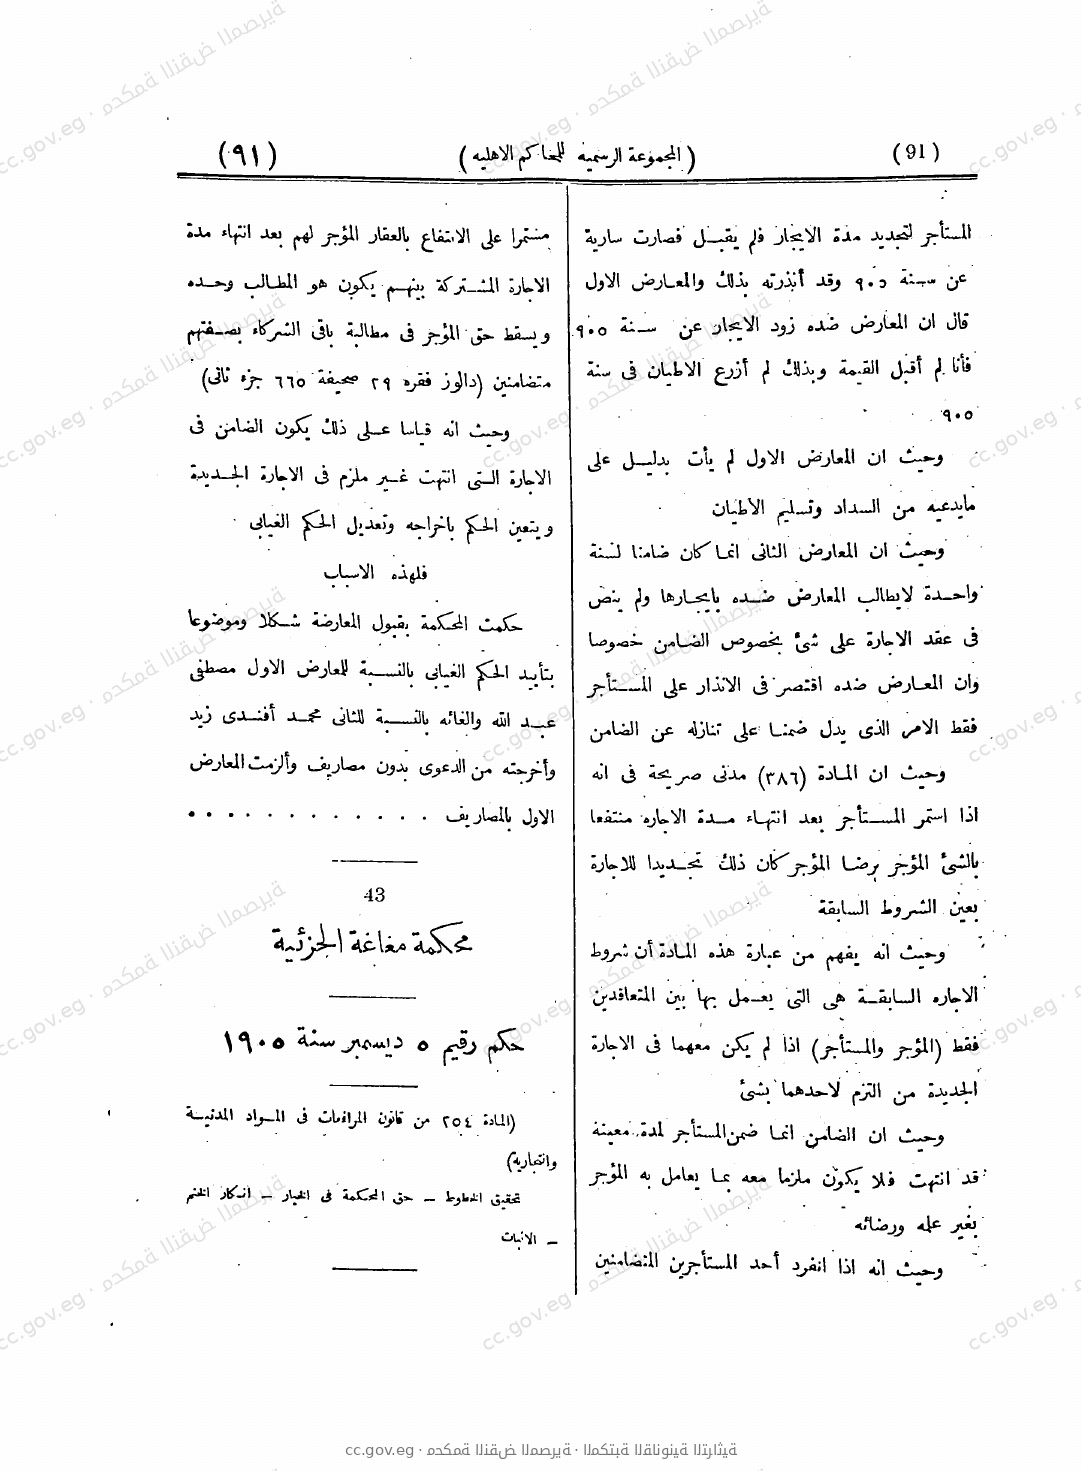 (91)
(المجموعة الرسمية للمحاكم الاهليه)
(٩١)
المستأجر لتجديد مدة الايجار فلم يقبل فصارت سارية
عن سنة ٩٠٥ وقد أنذرته بذلك والمعارض الاول
قال ان المعارض ضده زود الايجار عن سنة ٩٠٥
فأنا لم أقبل القيمة وبذلك لم أزرع الاطيان فى سنة
٩٠٥
وحيث ان المعارض الاول لم يأت بدليل على
مايدعيه من السداد وتسليم الاطيان
وحيث ان المعارض الثانى انما كان ضامنا لسنة
واحدة لايطالب المعارض ضده بايجارها ولم ينص
فى عقد الاجارة على شئ بخصوص الضامن خصوصا
وان المعارض ضده اقتصر فى الانذار على المستأجر
فقط الامر الذى يدل ضمنا على تنازله عن الضامن
وحيث ان المادة (٣٨٦) مدنى صريحة فى انه
اذا استمر المستأجر بعد انتهاء مدة الاجاره منتفعا
بالشئ المؤجر برضا المؤجر كان ذلك تجديدا للاجارة
بعين الشروط السابقة
وحيث انه يفهم من عبارة هذه المادة أن شروط
الاجاره السابقة هى التى يعمل بها بين المتعاقدين
فقط (المؤجر والمستأجر) اذا لم يكن معهما فى الاجارة
الجديدة من التزم لاحدهما بشئ
وحيث ان الضامن انما ضمن المستأجر لمدة معينة
قد انتهت فلا يكون ملزما معه بما يعامل به المؤجر
بغير علمه ورضائه
وحيث انه اذا انفرد أحد المستأجرين المتضامنين
مستمرا على الانتفاع بالعقار المؤجر لهم بعد انتهاء مدة
الاجارة المشتركة بينهم يكون هو المطالب وحده
ويسقط حق المؤجر فى مطالبة باقى الشركاء بصفتهم
متضامنين (دالوز فقره ٢٩ صحيفة ٦٦٥ جزء ثانى)
وحيث انه قياسا على ذلك يكون الضامن فى
الاجارة التى انتهت غير ملزم فى الاجارة الجديدة
ويتعين الحكم باخراجه وتعديل الحكم الغيابى
فلهذه الاسباب
حكمت المحكمة بقبول المعارضة شكلا وموضوعا
بتأييد الحكم الغيابى بالنسبة للمعارض الاول مصطفى
عبد الله والغائه بالنسبة للثانى محمد أفندى زيد
وأخرجته من الدعوى بدون مصاريف وألزمت المعارض
الاول بالمصاريف . . . . . . . . . . . .
43
محكمة مغاغة الجزئية
حكم رقيم ٥ ديسمبر سنة ١٩٠٥
(المادة ٢٥٤ من قانون المرافعات فى المواد المدنية
والتجارية)
تحقيق الخطوط – حق المحكمة فى الخيار – انكار الختم
– الاثبات
cc.gov.eg · محكمة النقض المصرية · المكتبة القانونية التراثية